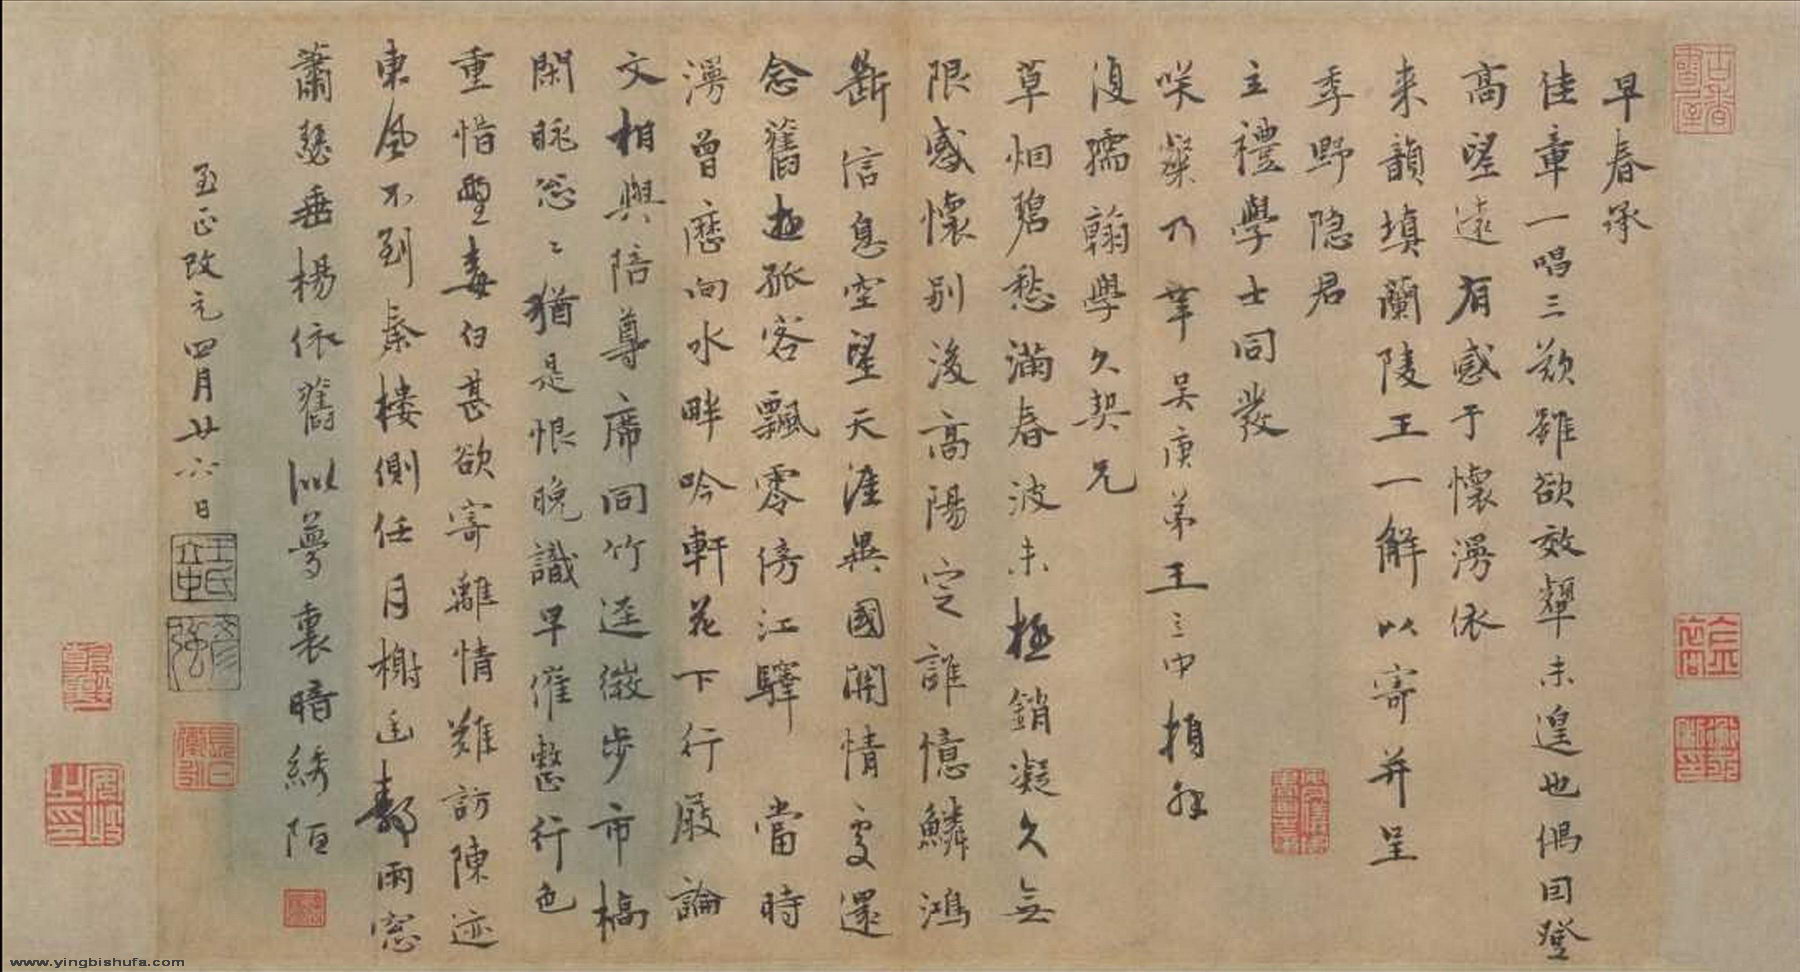 早春承
佳章一唱三歎雖欲效顰未遑也偶因登
高望遠有感于懷漫依
来韻填蘭陵王一解以寄并呈
季野隐君
主禮學士同發
咲粲乃幸吴庚弟王立中頓
復孺翰學久契兄
草烟碧愁滿春波未極銷凝久無
限感懷别後高陽定誰憶鱗鴻
斷信息空望天涯異國関情處還
念舊遊孤客飄零傍江驛 當時
漫曾歷向水畔吟軒花下行厩論
文相與陪尊席同竹逕微步市橋
閑眺忩〻猶是恨晚識早催整行色
重惜聖毒白甚欲寄離情難訪陳迹
東風不到秦樓側任月榭
雨窓
蕭瑟垂楊依舊似夢裏暗綉陌
至正改元四月廿六日
王氏立中
彦強
www.yingbishufa.com